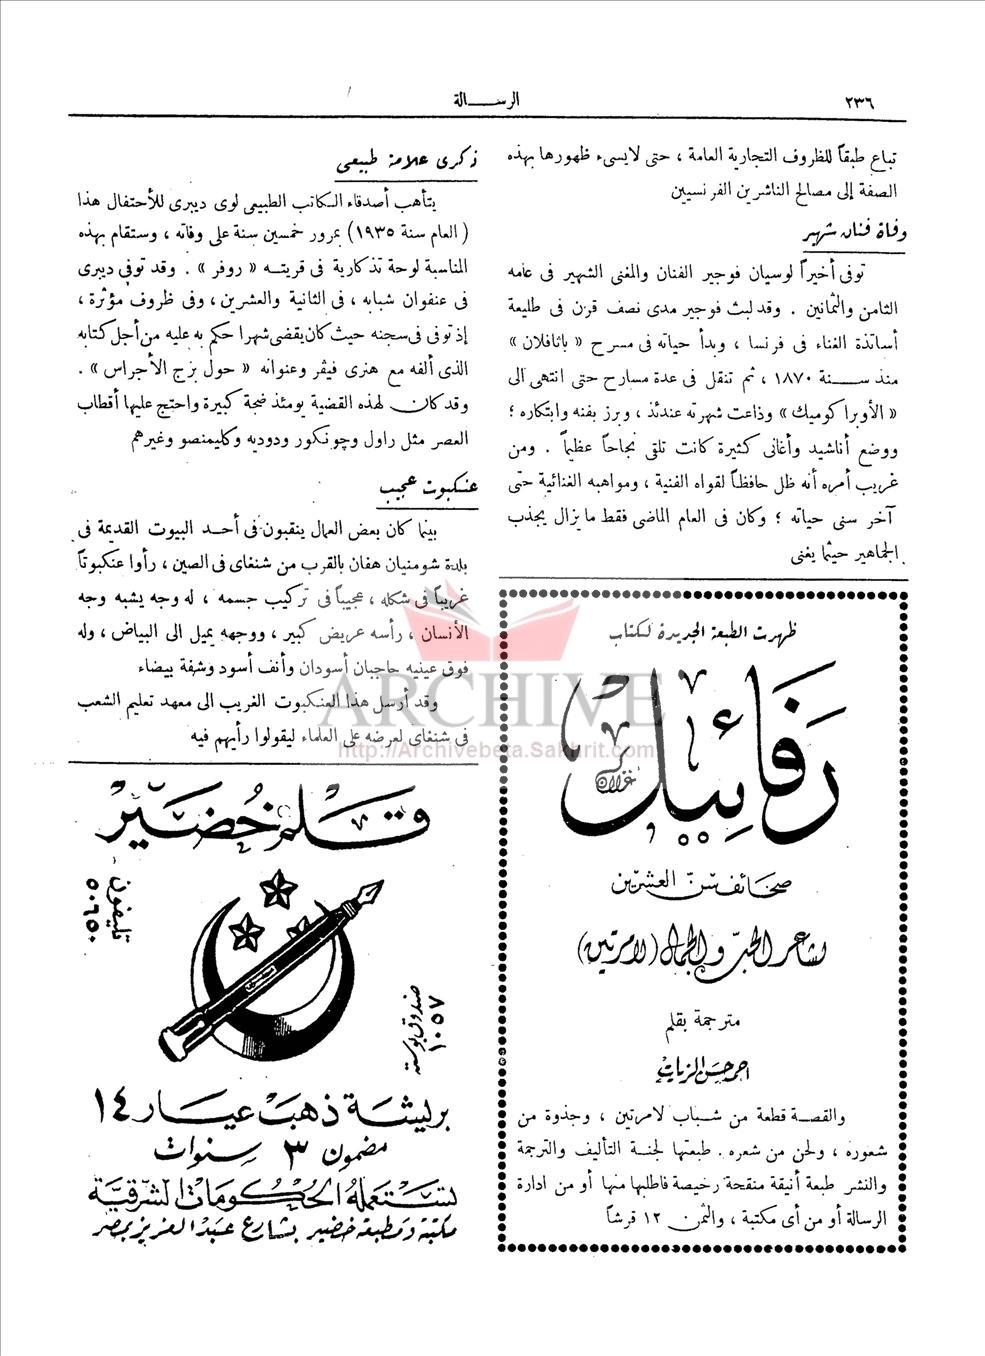 ٢٣٦
الرســـالة
تباع طبقاً للظروف التجارية العامة ، حتى لايسىء ظهورها بهذه
الصفة إلى مصالح الناشرين الفرنسيين
وفاة فنان شهير
توفى أخيراً لوسيان فوجير الفنان والمغنى الشهير فى عامه
الثامن والثمانين . وقد لبث فوجير مدى نصف قرن فى طليعة
أساتذة الغناء فى فرنسا ، وبدأ حياته فى مسرح « باثافلان »
منذ ســـنة ١٨٧٠ ، ثم تنقل فى عدة مسارح حتى انتهى الى
« الأوبرا كوميك » وذاعت شهرته عندئذ ، وبرز بفنه وابتكاره ؛
ووضع أناشيد وأغانى كثيرة كانت تلقى نجاحاً عظيماً . ومن
غريب أمره أنه ظل حافظاً لقواه الفنية ، ومواهبه الغنائية حتى
آخر سنى حياته ؛ وكان فى العام الماضى فقط مايزال يجذب
الجماهير حيثما يغنى
ظهرت الطبعة الجديدة لكتاب
رفائيل
غزلان
صحائف سن العشرين
لشاعر الحبّ والجمال (لامرتين)
مترجمة بقلم
احمد حسن الزيات
والقصـة قطعة من شـباب لامرتين ، وجذوة من
شعوره ، ولحن من شعره . طبعتها لجنة التأليف والترجمة
والنشر طبعة أنيقة منقحة رخيصة فاطلبها منها أو من ادارة
الرسالة أو من أى مكتبة ، والثمن ١٢ قرشاً
ذكرى علامة طبيعى
يتأهب أصدقاء الكاتب الطبيعى لوى ديبرى للأحتفال هذا
( العام سنة ١٩٣٥ ) بمرور خمسين سنة على وفاته ، وستقام بهذه
المناسبة لوحة تذكارية فى قريتـه « روفر » . وقد توفى ديبرى
فى عنفوان شبابه ، فى الثانية والعشرين ، وفى ظروف مؤثرة ،
إذ توفى فى سجنه حيث كان يقضى شهرا حكم به عليه من أجل كتابه
الذى ألفه مع هنرى فيڤر وعنوانه « حول بزج الأجراس » .
وقد كان لهذه القضية يومئذ ضجة كبيرة واحتج عليها أقطاب
العصر مثل زاول وچونكور ودوديه وكليمنصو وغيرهم
عنكبوت عجيب
بينما كان بعض العمال ينقبون فى أحـد البيوت القديمة فى
بلدة شومنيان هفان بالقرب من شنغاى فى الصين ، رأوا عنكبوتاً
غريباً فى شكله ، عجيباً فى تركيب جسمه ، له وجه يشبه وجه
الأنسان ، رأسه عريض كبير ، ووجهه يميل الى البياض ، وله
فوق عينيه حاجبان أسودان وأنف أسود وشفة بيضاء
وقد أرسل هذا العنكبوت الغريب الى معهد تعليم الشعب
فى شنغاى لعرضه على العلماء ليقولوا رأيهم فيه
قلم خضير
تليفون
٥٠٦٥٠
صندوق بوسته
١٠٥٧
بريشة ذهب عيار ١٤
مضمون ٣ سنوات
تستعمله الحكومات الشرقية
مكتبة ومطبعة خضير بشارع عبد العزيز بمصر
ARCHIVE
http://Archivebeta.Sakhrit.com